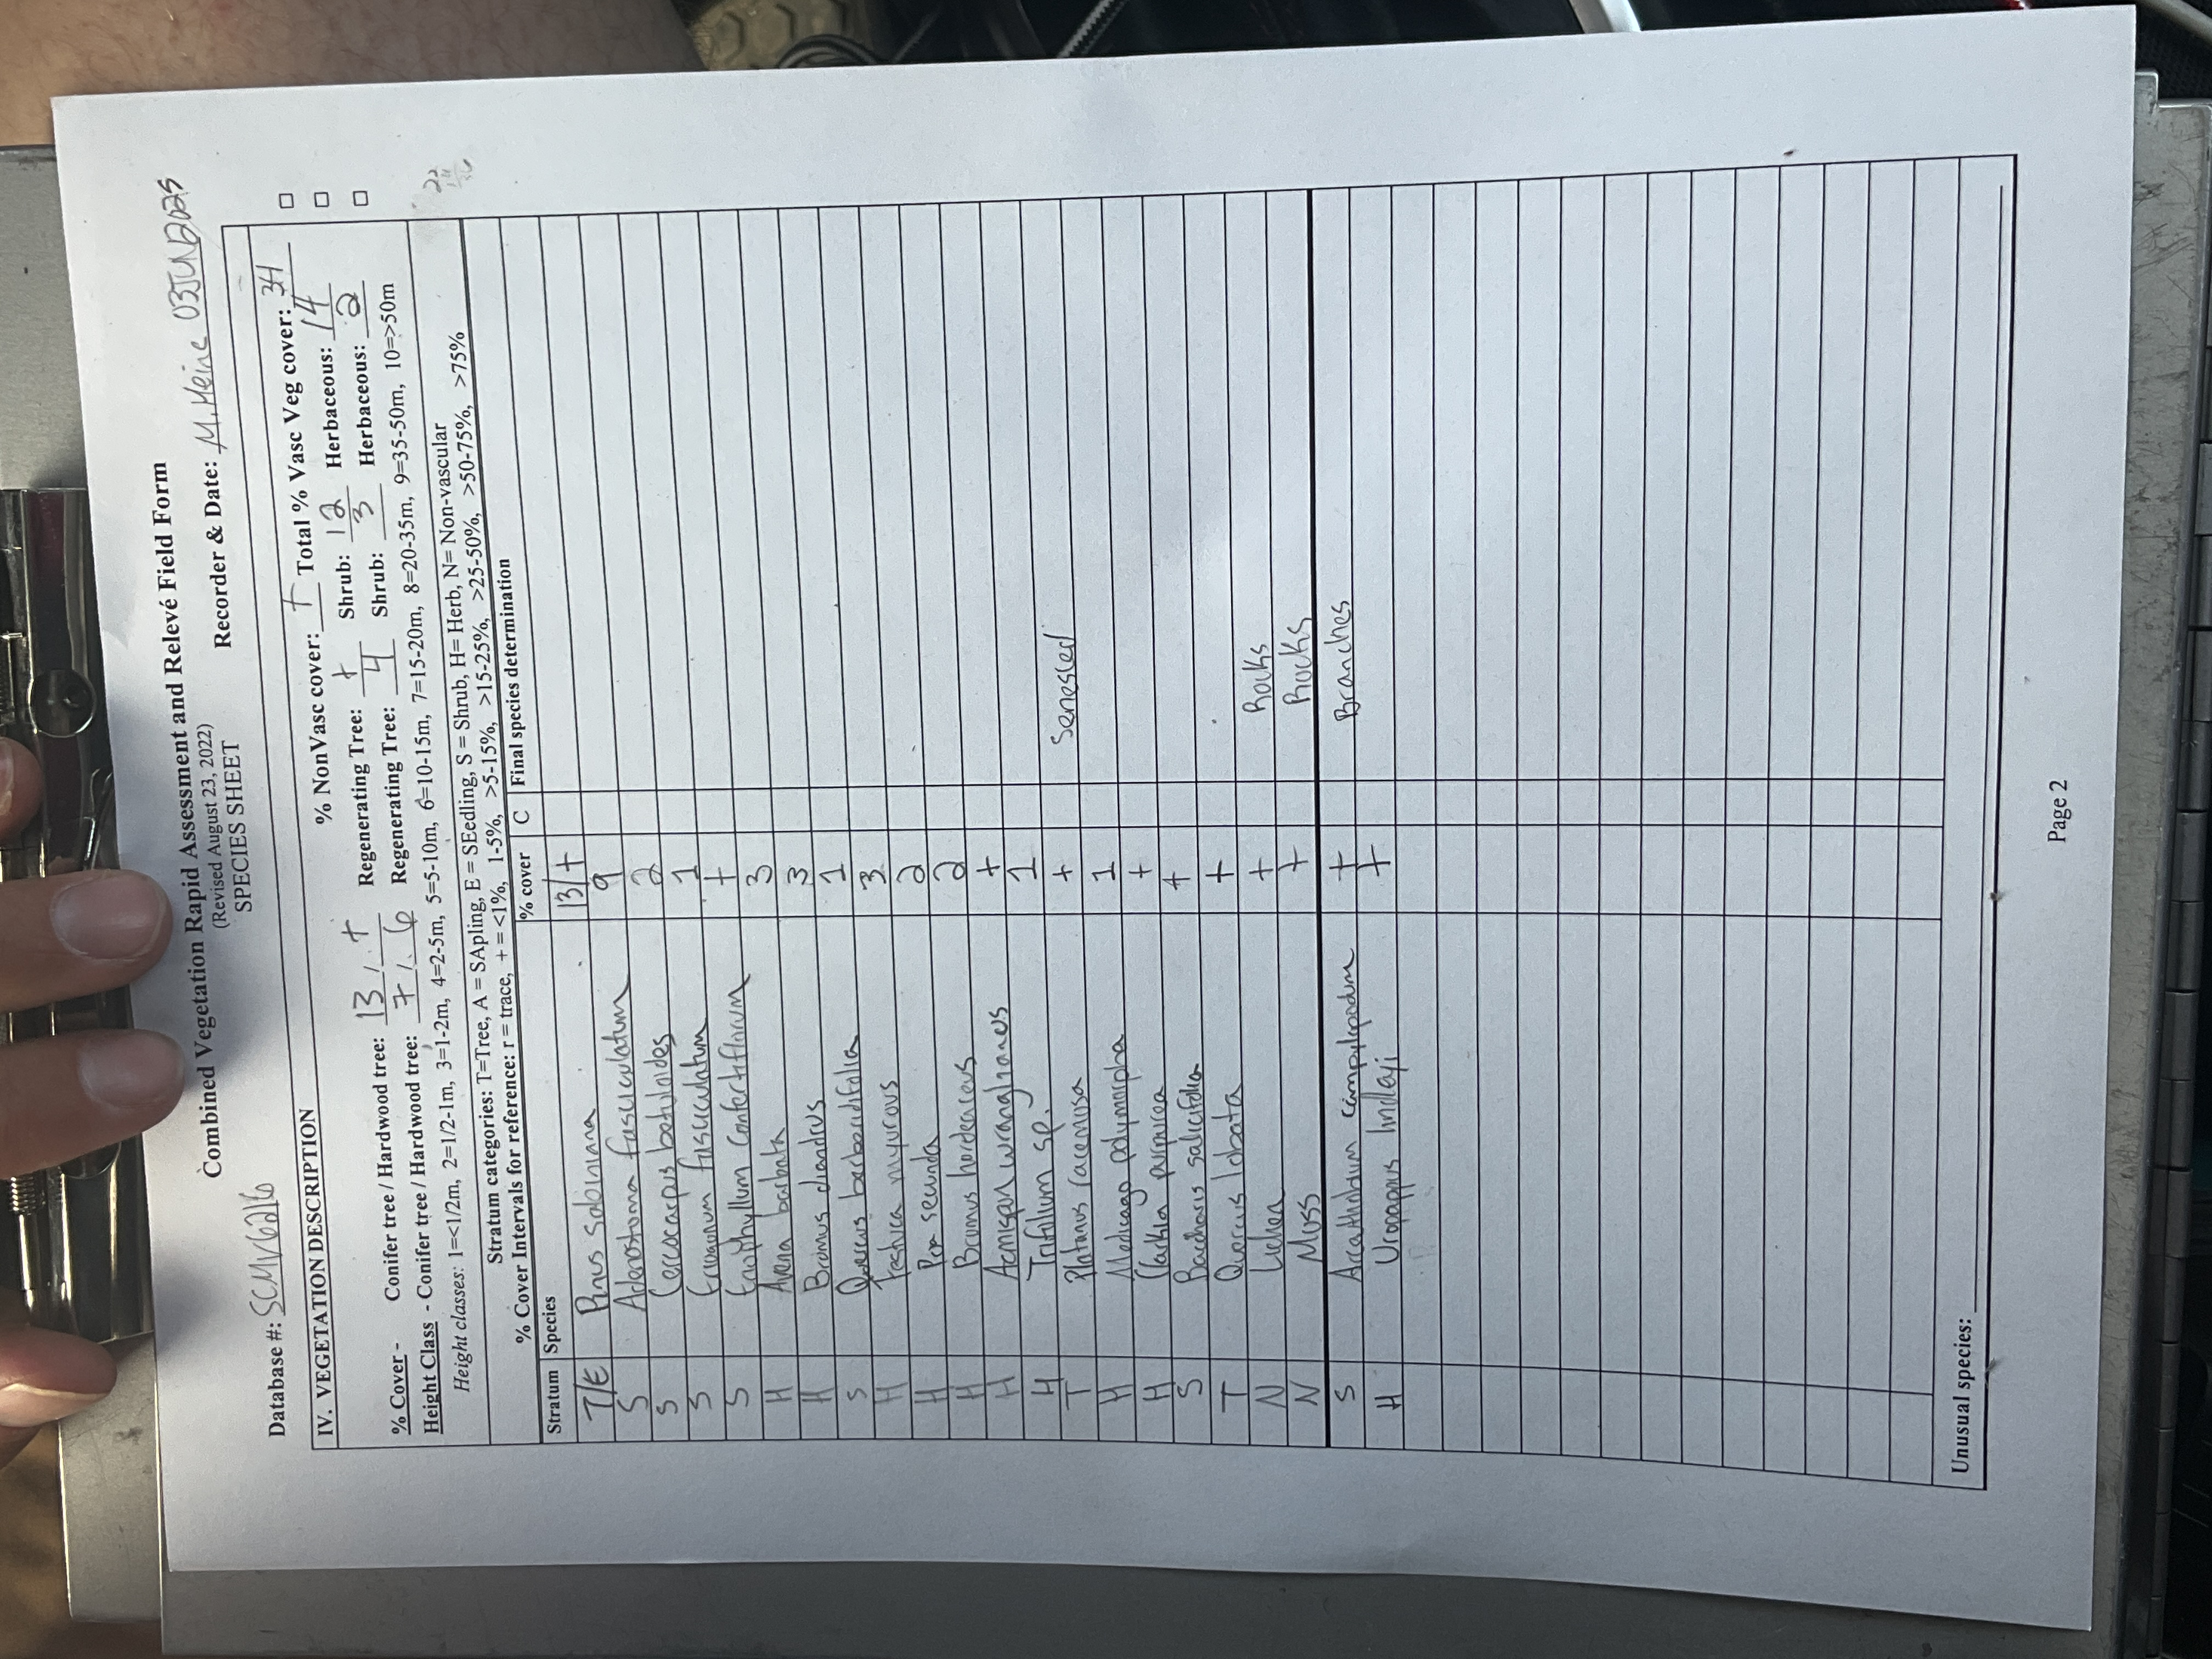 Combined Vegetation Rapid Assessment and Relevé Field Form
(Revised August 23, 2022)
SPECIES SHEET
Database #: SCMV6216 Recorder & Date: M. Heine 03JUN2025
IV. VEGETATION DESCRIPTION
% NonVasc cover: + Total % Vasc Veg cover: 34
% Cover - Conifer tree / Hardwood tree: 13 / + Regenerating Tree: + Shrub: 12 Herbaceous: 14
Height Class - Conifer tree / Hardwood tree: 7 / 6 Regenerating Tree: 4 Shrub: 3 Herbaceous: 2
Height classes: 1=<1/2m, 2=1/2-1m, 3=1-2m, 4=2-5m, 5=5-10m, 6=10-15m, 7=15-20m, 8=20-35m, 9=35-50m, 10=>50m
Stratum categories: T=Tree, A = SApling, E = SEedling, S = Shrub, H= Herb, N= Non-vascular
% Cover Intervals for reference: r = trace, + = <1%, 1-5%, >5-15%, >15-25%, >25-50%, >50-75%, >75%
Stratum Species % cover C Final species determination
T/E Pinus sabiniana 13/+
S Adenostoma fasciculatum 9
S Cercocarpus betuloides 2
S Eriogonum fasciculatum 1
S Eriophyllum confertiflorum +
H Avena barbata 3
H Bromus diandrus 3
S Quercus berberidifolia 1
H Festuca myuros 3
H Poa secunda 2
H Bromus hordeaceus 2
H Acmispon wrangelianus +
H Trifolium sp. 1
T Platanus racemosa + Senesced
H Medicago polymorpha 1
H Clarkia purpurea +
S Baccharis salicifolia +
T Quercus lobata +
N Lichen + Rocks
N Moss + Rocks
S Arceuthobium campylopodum + Branches
H Uropappus lindleyi +
Unusual species:
Page 2